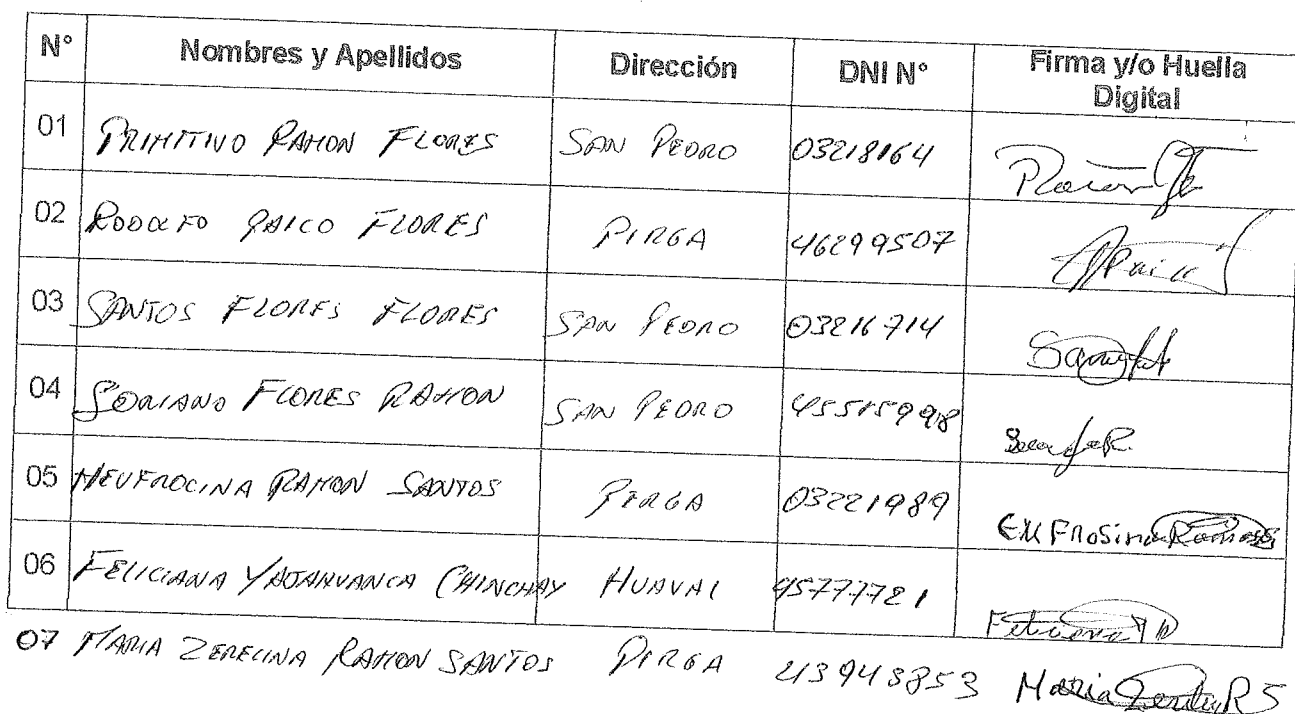 N° Nombres y Apellidos Dirección DNI N° Firma y/o Huella Digital
01 PRIMITIVO RAMON FLORES SAN PEDRO 03218164
02 RODOLFO PAICO FLORES PIRGA 46299507
03 SANTOS FLORES FLORES SAN PEDRO 03216714
04 SORIANO FLORES RAMON SAN PEDRO
05 NEUFROCINA RAMON SANTOS PIRGA 03221989 EUFROSINA RAMOS
06 FELICIANA YAJAHUANCA CHINCHAY HUAVAL 45777721 Feliciana
07 MARIA ZERELINA RAMON SANTOS PIRGA 43943853 Maria R S